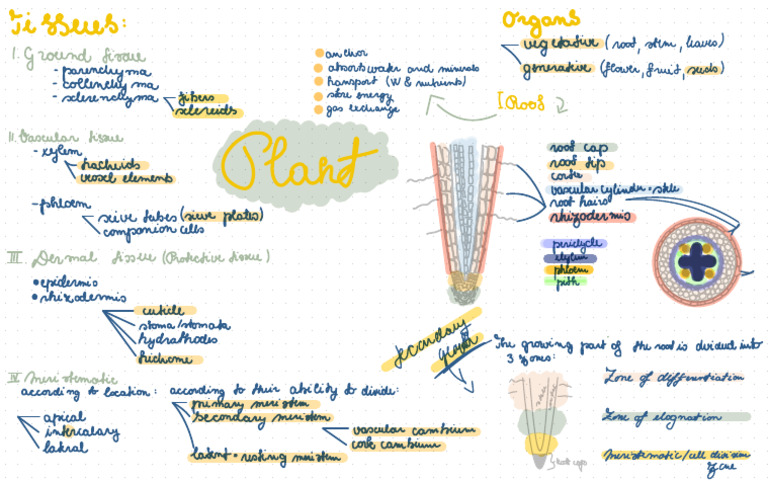 Tissues:
I. Ground tissue
- parenchyma
- collenchyma
- sclerenchyma
fibers
sclereids
II. Vascular tissue
- xylem
tracheids
vessel elements
- phloem
sieve tubes (sieve plates)
companion cells
III. Dermal tissue (Protective tissue)
epidermis
rhizodermis
cuticle
stoma/stomata
hydrathodes
trichome
IV Meristematic
according to location:
apical
intercalary
lateral
according to their ability to divide:
primary meristem
secondary meristem
vascular cambium
cork cambium
latent - resting meristem
anchor
absorbs water and minerals
transport (W & nutrients)
store energy
gas exchange
Plant
Organs
vegetative (root, stem, leaves)
generative (flower, fruit, seeds)
I. Root
root cap
root tip
vascular cylinder - stele
root hairs
rhizodermis
pericycle
phloem
pith
secondary
growth
The growing part of the root is divided into
3 zones:
Zone of differentiation
Zone of elognation
Meristematic/cell division
zone
root cap